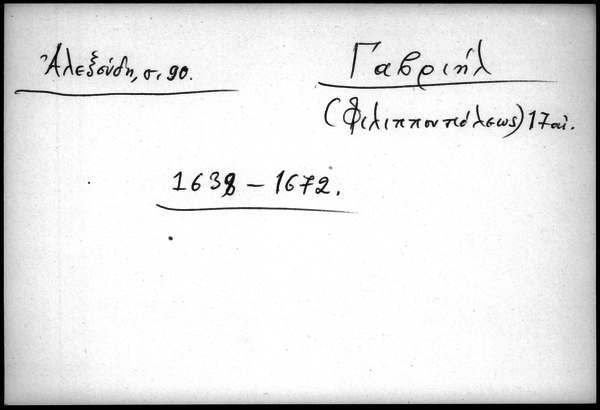 Ἀλεξούδη, σ. 90.
Γαβριήλ
(Φιλιππουπόλεως) 17 αἰ.
1638 – 1672.